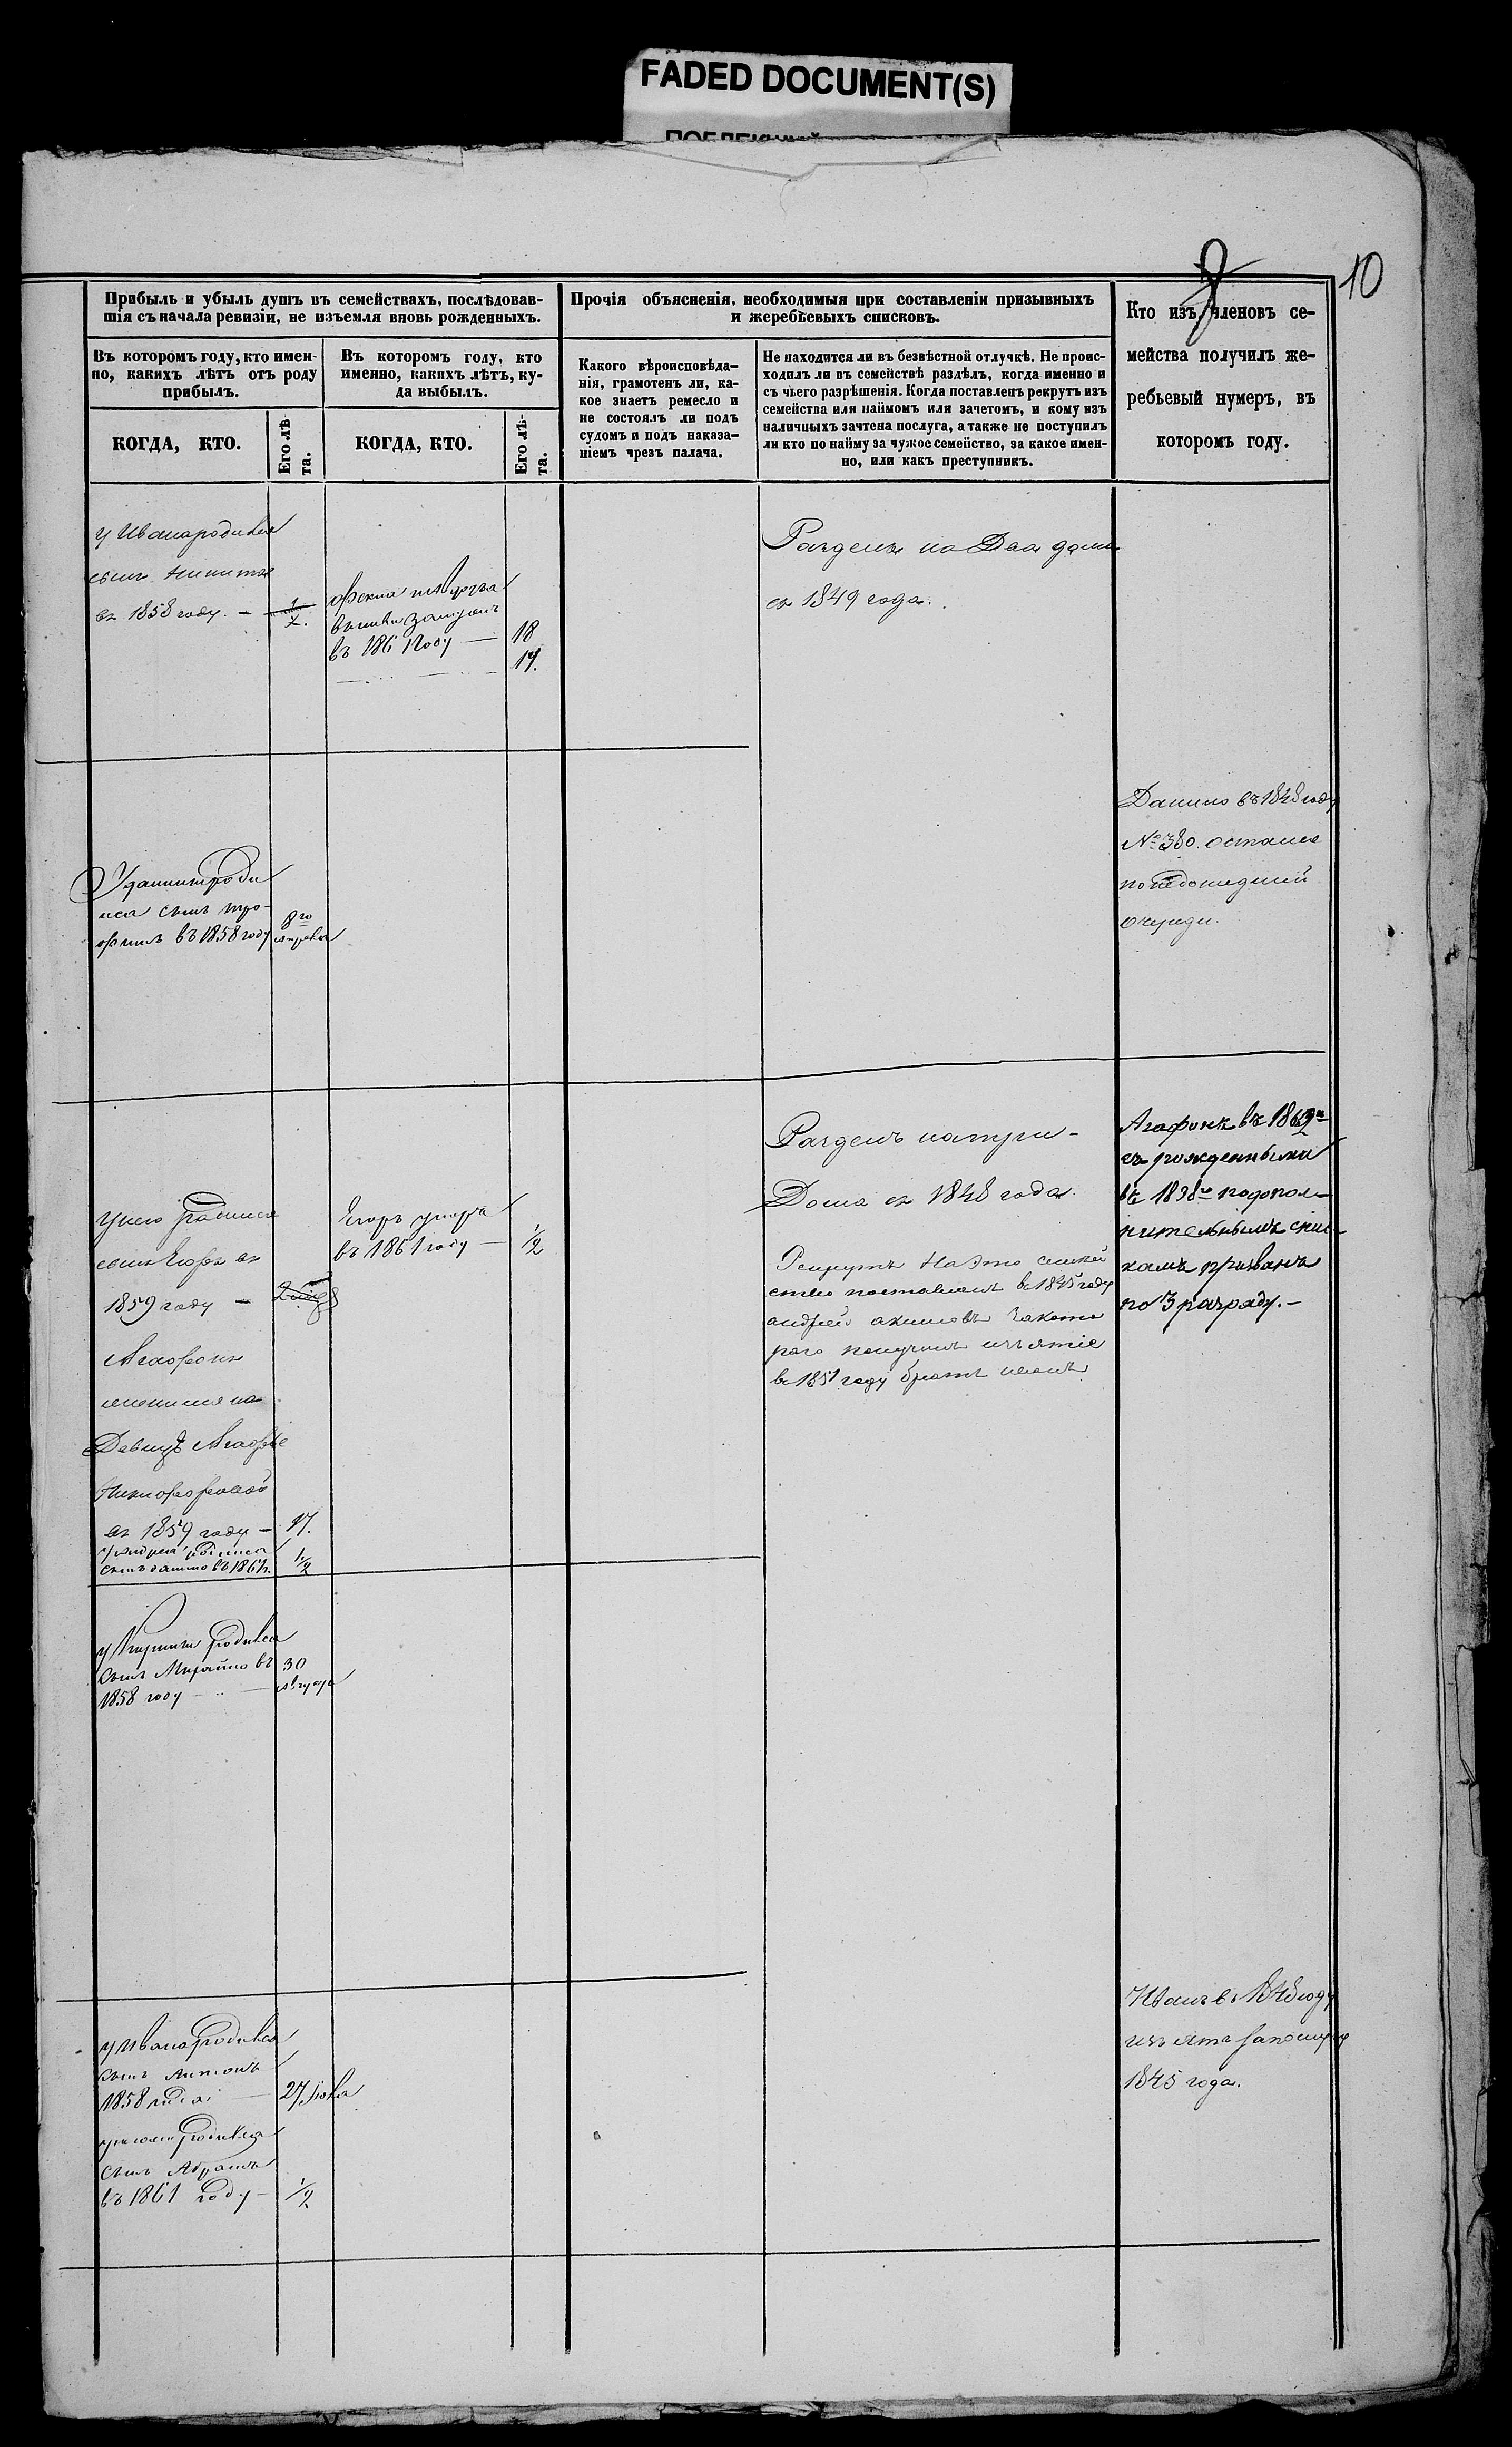 FADED DOCUMENT(S)
10
Прибыль и убыль душъ въ семействахъ, послѣдовав-
шія съ начала ревизіи, не изъемля вновь рожденныхъ.
Прочія объясненія, необходимыя при составленіи призывныхъ
и жеребьевыхъ списковъ.
Кто изъ членовъ се-
мейства получилъ же-
ребьевый нумеръ, въ
которомъ году.
Въ которомъ году, кто имен-
но, какихъ лѣтъ отъ роду
прибылъ.
Въ которомъ году, кто
именно, какихъ лѣтъ, ку-
да выбылъ.
Какого вѣроисповѣда-
нія, грамотенъ ли, ка-
кое знаетъ ремесло и
не состоялъ ли подъ
судомъ и подъ наказа-
ніемъ чрезъ палача.
Не находится ли въ безвѣстной отлучкѣ. Не проис-
ходилъ ли въ семействѣ раздѣлъ, когда именно и
съ чьего разрѣшенія. Когда поставленъ рекрутъ изъ
семейства или наймомъ или зачетомъ, и кому изъ
наличныхъ зачтена послуга, а также не поступилъ
ли кто по найму за чужое семейство, за какое имен-
но, или какъ преступникъ.
КОГДА, КТО.
Его лѣ-
та.
КОГДА, КТО.
Его лѣ-
та.
у Ивана родился
сынъ Никита
въ 1858 году. —
въ 1861 году — 18
17.
Разделъ на Два дома
съ 1849 года.
Данило въ 1848 году
№ 380. остался
по недошедшей
очереди.
У данилы роди
лся сынъ тро-
фимъ въ 1858 году
8го
апреля
Разделъ на три-
Дома съ 1848 года.
Агафонъ въ
съ рожденными
въ 1838м по допол-
нительнымъ спис-
камъ призванъ
по 3 разряду. —
У него родился
сынъ Егоръ въ
1859 году —
Егоръ умеръ
въ 1861 году — 1/2
Рекрутъ На Это семей
ство поставленъ въ 1845 году
андрей акимовъ Закото
раго получилъ изъятіе
въ 1851 году братъ иванъ
Агафонъ
женился на
Девицѣ Агафье
Никифоровой
въ 1859 году — 17.
у андрея родился
сынъ данило въ 1861 г. 1/2
родился
сынъ Михайло въ
1858 году
30
августа
Иванъ въ 1848 году
изъятъ
1845 года.
у Ивана родился
сынъ антонъ
1858 года — 27 Июля
родился
сынъ Абрамъ
въ 1861 году — 1/2